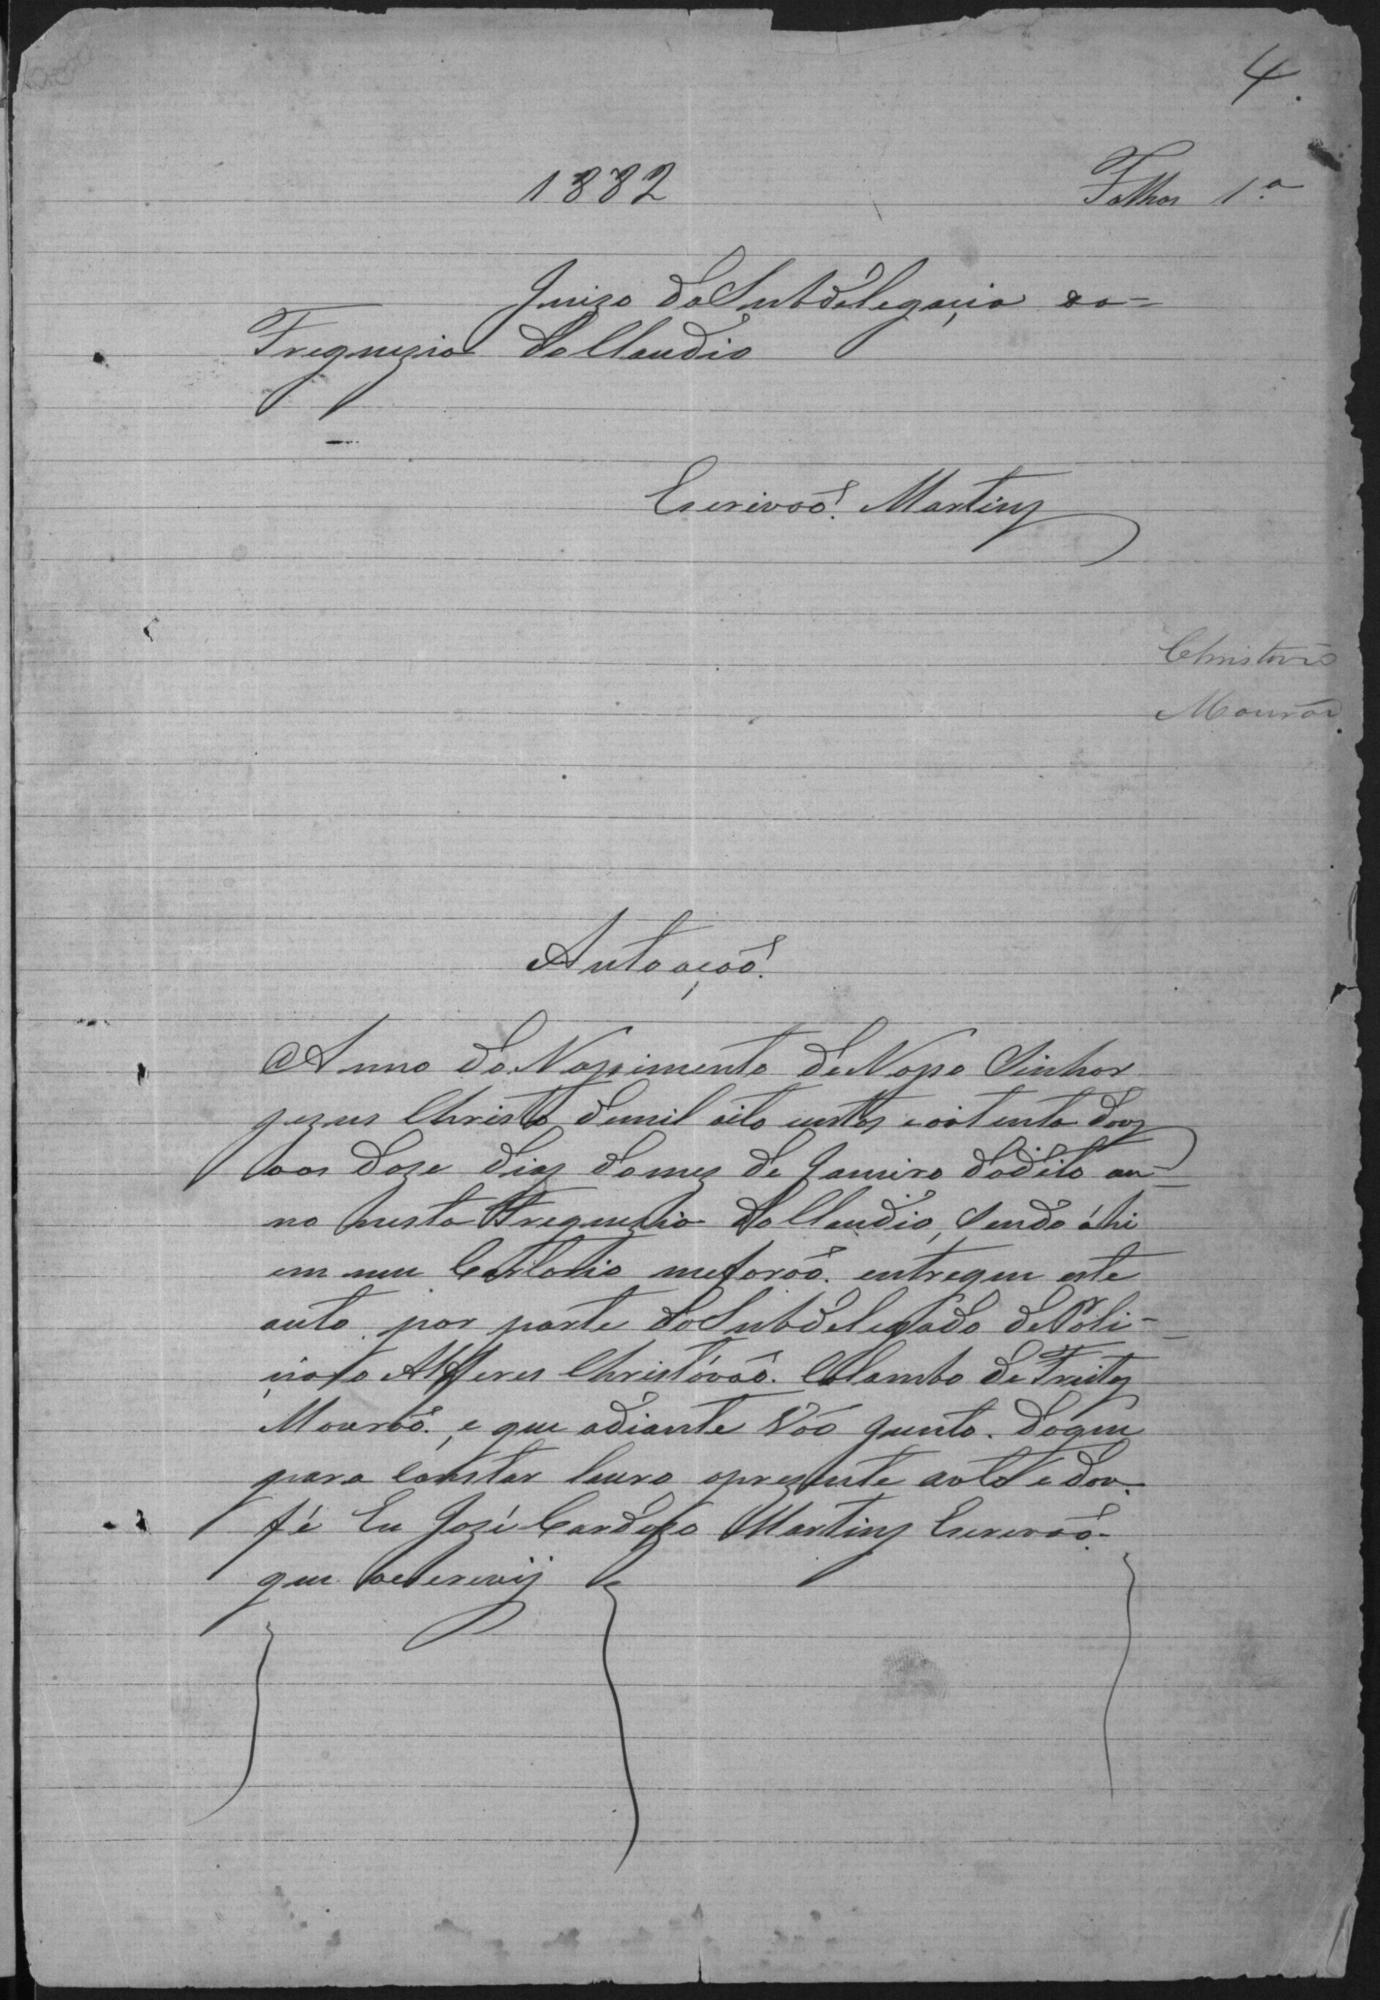 4.
1882
Folhas 1ª
Juizo da Subdelegacia da
Freguezia do Claudio
Escrivaõ. Martins
Christovão
Mourão
Autoaçaõ.
Anno do Nassimento de Nosso Sinhor
Jezus Christo de mil oito centos e oitenta dous
aos doze dias do mez de Janeiro do dito an-
no nesta Freguezia do Claudio, sendo áhi
em meu Cartorio me foraõ. entregue este
auto por parte do Subdelegado de Poli-
cia o Alferes Christóvaõ. Colambo de Freitas
Mouraõ., e que adiante Vão Junto. do que
para constar lavro o prezente auto e dou
fé Eu Jozé Cardozo Martins Escrivaõ.
que o escrevij